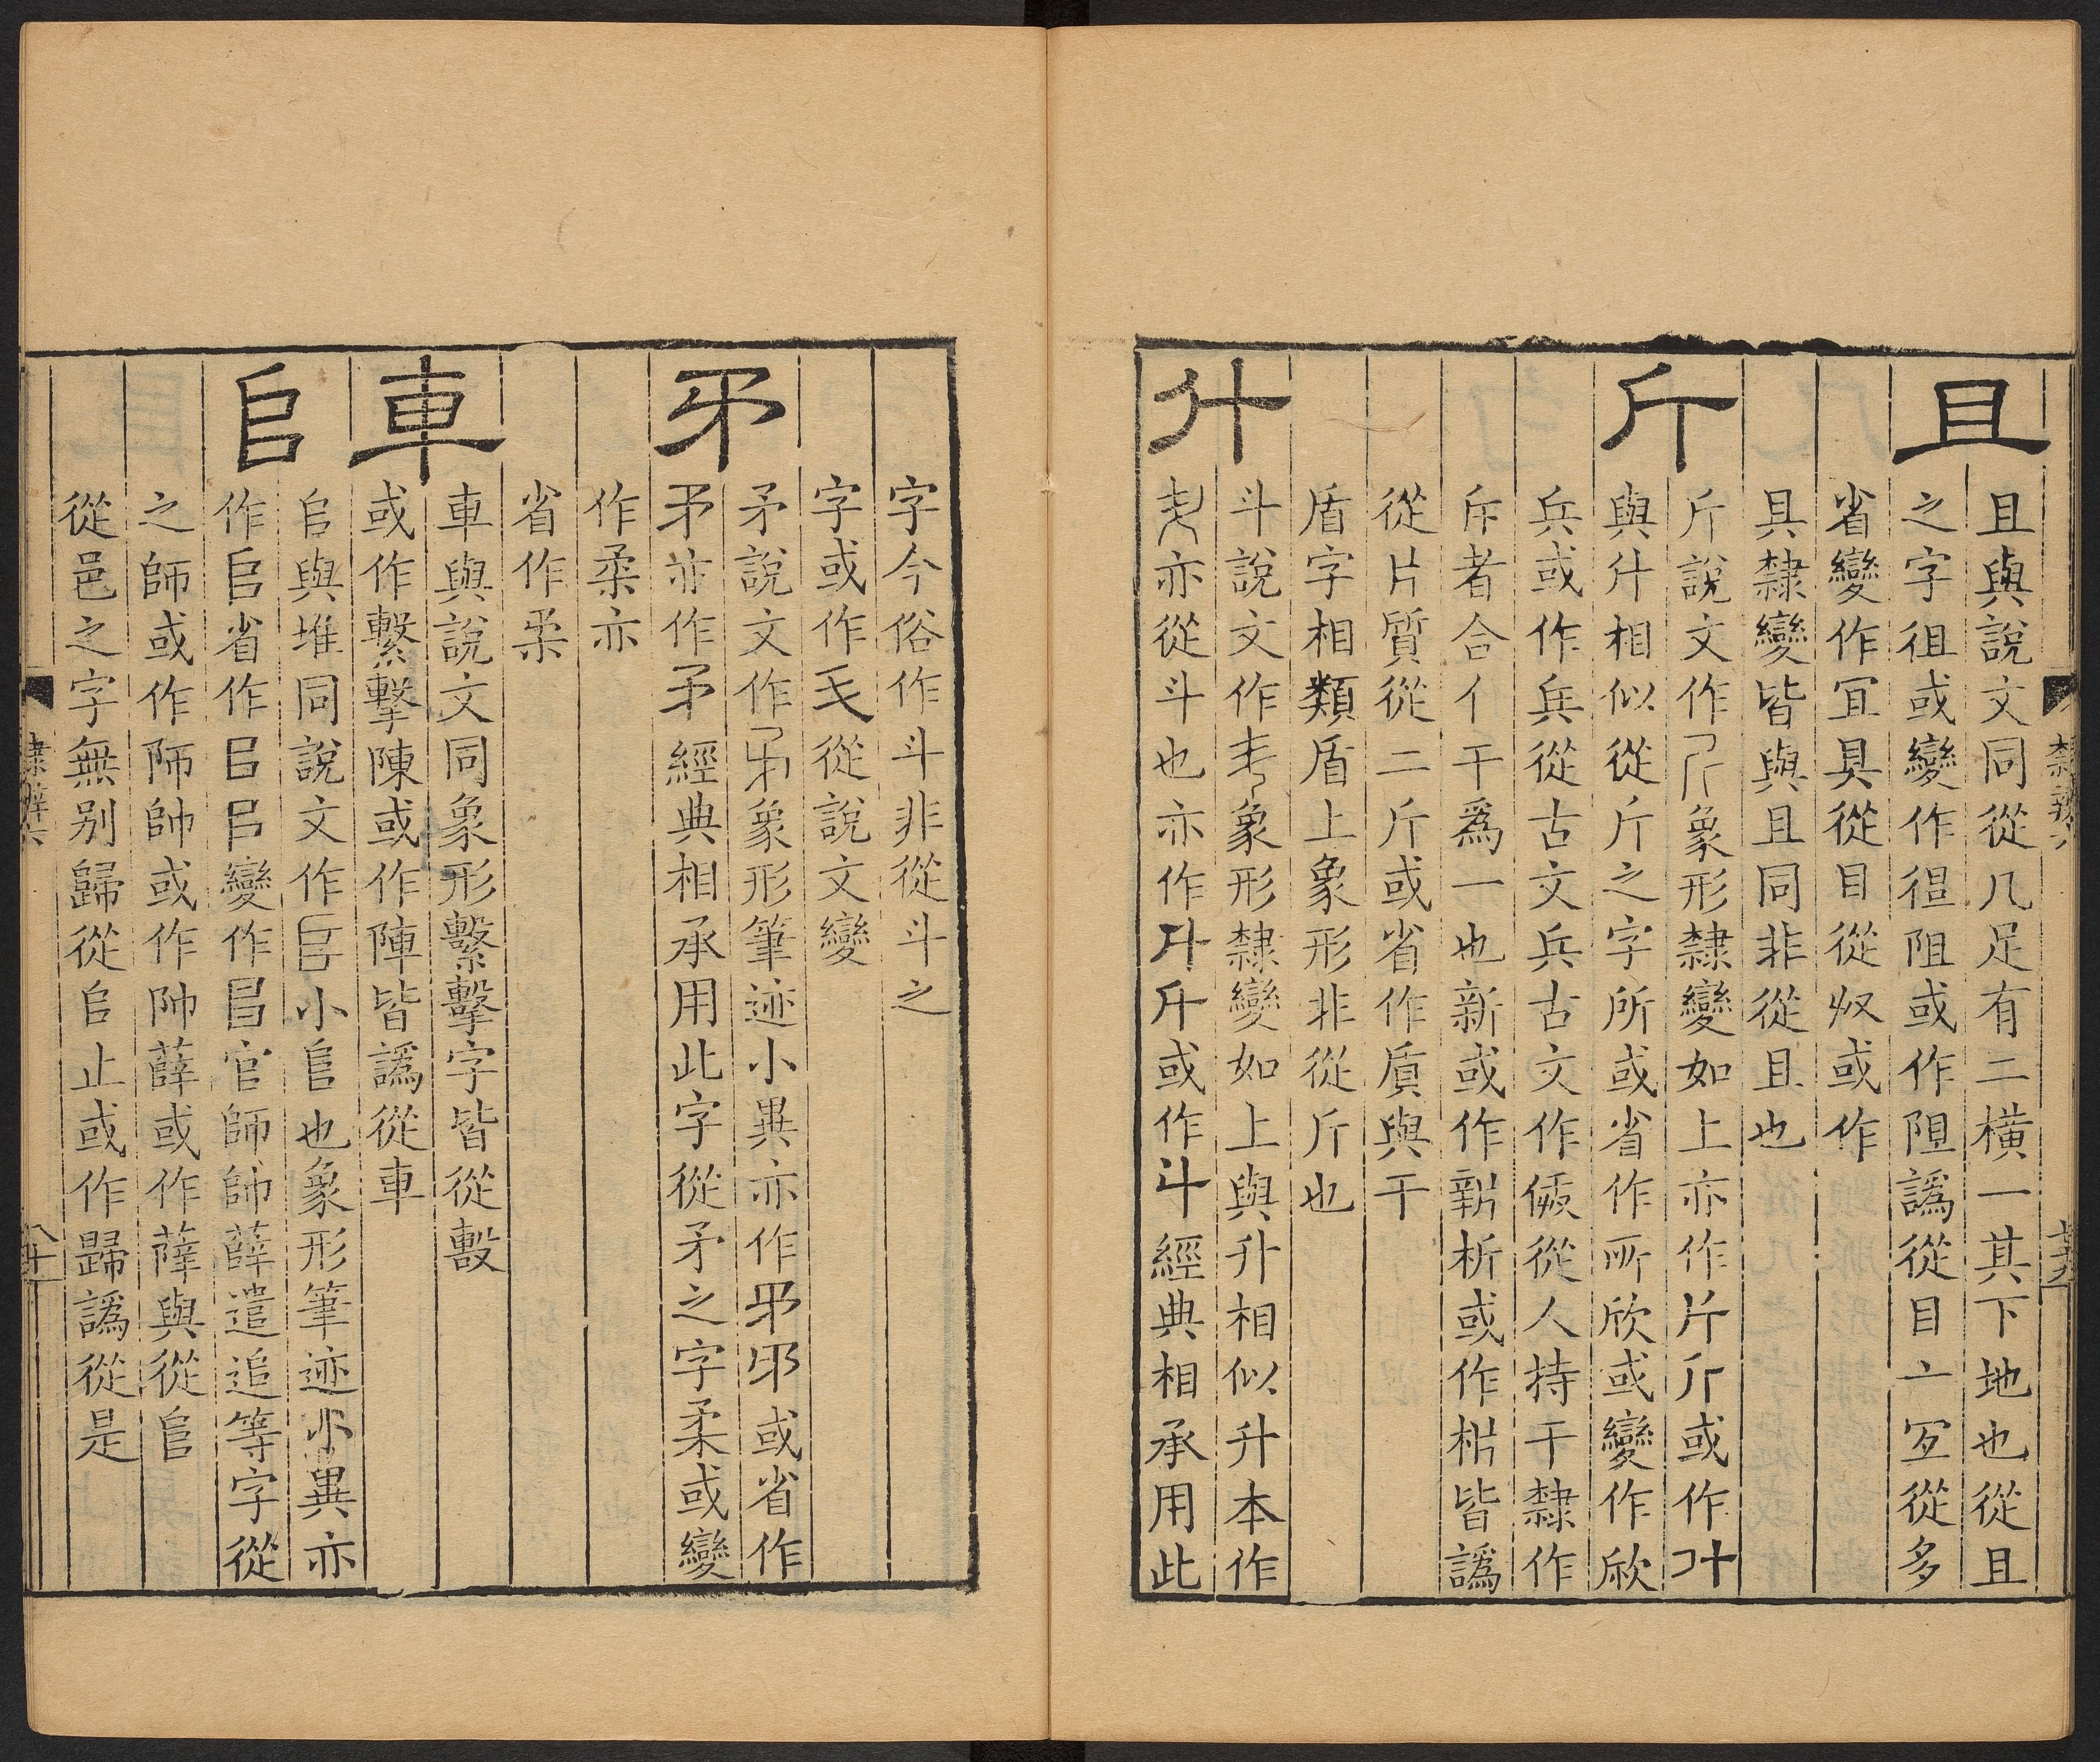 且
且與說文同從几足有二橫一其下地也從且
之字徂或變作徂阻或作阻譌從目亠冝從多
省變作冝具從目從収或作
具隸變皆與且同非從且也
斤
斤說文作斤象形隸變如上亦作斤斤或作
與什相似從斤之字所或省作所欣或變作欣
兵或作兵從古文兵古文作㒋從人持干隸作
斥者合亻干爲一也新或作新析或作析皆譌
從片質從二斤或省作貭與干
盾字相類盾上象形非從斤也
斗
斗說文作象形隸變如上與升相似升本作
亦從斗也亦作或作斗經典相承用此
字今俗作斗非從斗之
字或作从說文變
矛
矛說文作象形筆迹小異亦作或省作
矛亦作矛經典相承用此字從矛之字柔或變
作柔亦
省作柔
車
車與說文同象形繫擊字皆從毄
或作繫擊陳或作陣皆譌從車
𠂤
𠂤與堆同說文作𠂤小𠂤也象形筆迹小異亦
作𠂤省作㠯㠯變作㠯官師師薛遣追等字從
之師或作師帥或作帥薛或作薛與從𠂤
從邑之字無别歸從𠂤止或作歸譌從是
隸辨六